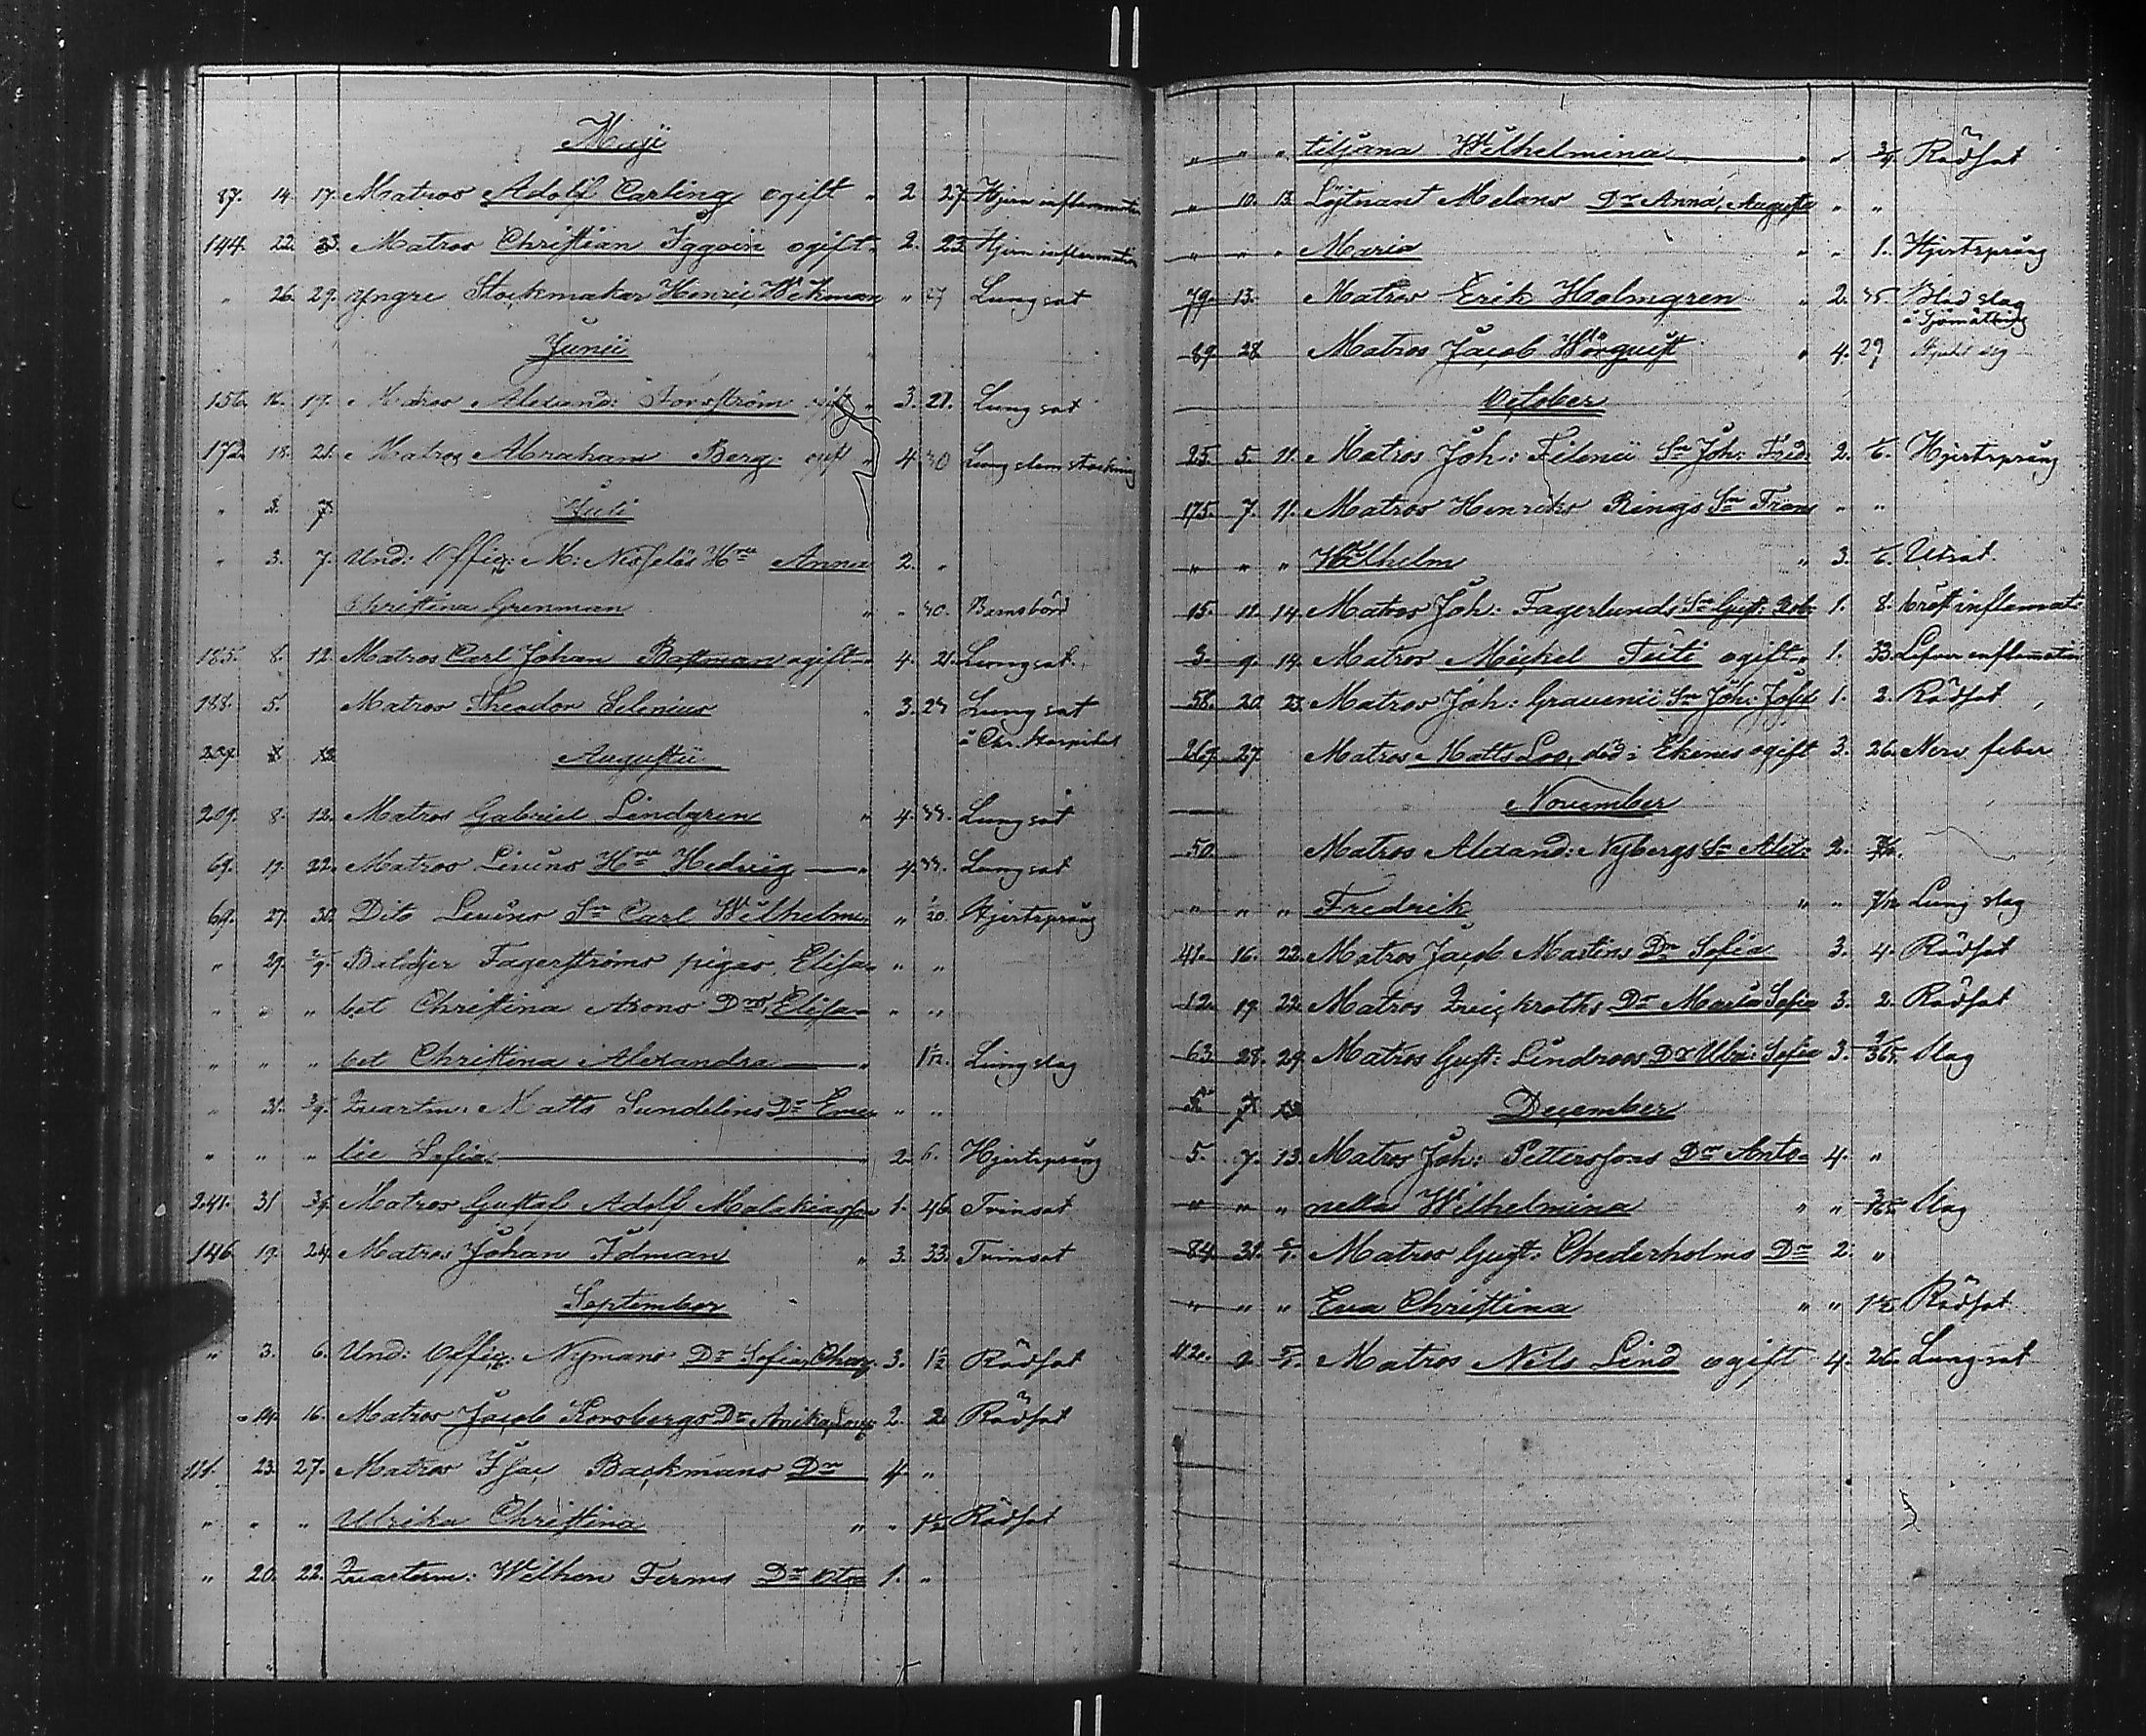 Maji
87. 14. 17. Matros Adolf Carling ogift " 2 27 Hjern inflammation
144. 22. 23. Matros Christian Iggoin ogift " 2. 23 Hjern inflammation
" 26. 29. yngre Stockmakar Henric Wikman " 27 Lungsot
Junii
156. 16. 19. Matros Alexand: Forsström ogift " 3. 21. Lungsot
172. 18. 21. Matros Abraham Berg ogift " 4 30 Lung slem stockning
" 3. 7. Juli
" 3. 7. Und: Offic: M: Hru Anna 2. "
Christina Grenman " " 30. Barnsbörd
185. 8. 12. Matros Carl Johan Bastman ogift " 4. 21. Lungsot
188. 5. Matros Theodor Selenius " 3. 23 Lungsot
å Chr. Hospital
209. 8. 12. Augustii
209. 8. 12. Matros Gabriel Lindgren " 4. 33. Lungsot
69. 19. 22. Matros Liuens Hru Hedvig " 4. 33. Lungsot
69. 27. 30. Dito Liuens Sn Carl Wilhelm " " 1/20. Hjertsprång
" 29. 2/9. Fagerströms pigas, Elisa- " "
" " " bet Christina Arons Dr Elisa- " "
" " " bet Christina Alexandra " 1/12. Lungslag
" 31. 3/9. Quartm: Matts Sundelins Dr Eme- " "
" " " lie Sofia. " 2. 6. Hjertsprång
241. 31 3/9. Matros Gustaf Adolf Malakiasson 1. 46. Tvinsot
146 19. 24. Matros Johan Idman " 3. 33. Tvinsot
September
" 3. 6. Und: Offic: Nymans Dr Sofia, Char. 3. 1½ Rödsot
" 14. 16. Matros Jacob Korsbergs Dr Anika, Lovis 2. 2. Rödsot
111. 23. 27. Matros Isac Backmans Dr 4. "
" " " Ulrika Christina " " 1½ Rödsot
" 20. 22. Quartm: Wilhem Ferms Dr Oto- 1. "
" " " tiljana Wilhelmina " " 3/4 Rödsot
" 10. 13. Löjtnant Melans Dr Anna, Augusta " "
" " " Maria " " 1. Hjertsprång
79. 13. Matros Erik Holmgren " 2. 35 Blod slag
å Sjömätning
89. 28. Matros Jacob Wörquist " 4. 29
October
25. 5. 11. Matros Joh: Filenii Sn Joh: Fred: 2. 1/6. Hjertsprång
175. 7. 11. Matros Henriks Rings Sn Frans " "
" " " Wilhelm " 3. 1/6. Utsot
15. 11. 14. Matros Joh: Fagerlunds Sn Gust: Rob: 1. 8. bröst inflamat:
3. 9. 14. Matros Mickel Teiti ogift " 1. 33. Lefver inflammation
58. 20. 23. Matros Joh: Gravenii Sn Joh: Josef 1. 2. Rödsot
267. 27. Matros Matts Loo, död i Ekenes ogift 3. 26. Nerv feber
November
50. Matros Alexand: Nybergs Sn Alex: 2. 7/12.
" " " Fredrik " " 7/12 Lung slag
41. 16. 22. Matros Jacob Martins Dr Sofia 3. 4. Rödsot
12. 19. 22. Matros Dr Maria Sofia 3. 2. Rödsot
63 28. 29. Matros Gust: Lindroos Dr Ulri: Sofia 3. 2/365. Slag
5 7. 13 December
5. 7. 13. Matros Joh: Petterssons Dr Anto- 4. "
" " " nella Wilhelmina " " 3/365. Slag
84. 31. 5/1. Matros Gust: Chederholms Dr 2. "
" " " Eva Christina " " 1½. Rödsot
112. 2. 5/1. Matros Nils Lind ogift 4. 26. Lungsot